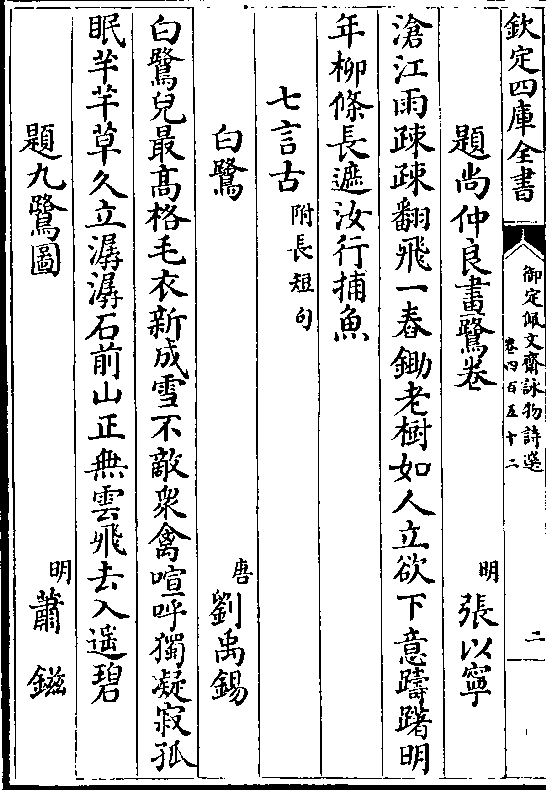 欽定四庫全書
御定佩文齋詠物詩選
卷四百五十二
二
題尚仲良畫鷺卷
明 張以寧
滄江雨疎疎翻飛一舂鋤老樹如人立欲下意躊躇明
年柳條長遮汝行捕魚
七言古 附長短句
白鷺
唐 劉禹錫
白鷺兒最髙格毛衣新成雪不敵衆禽喧呼獨凝寂孤
眠芊芊草久立潺潺石前山正無雲飛去入遥碧
題九鷺圖
明 蕭鎡